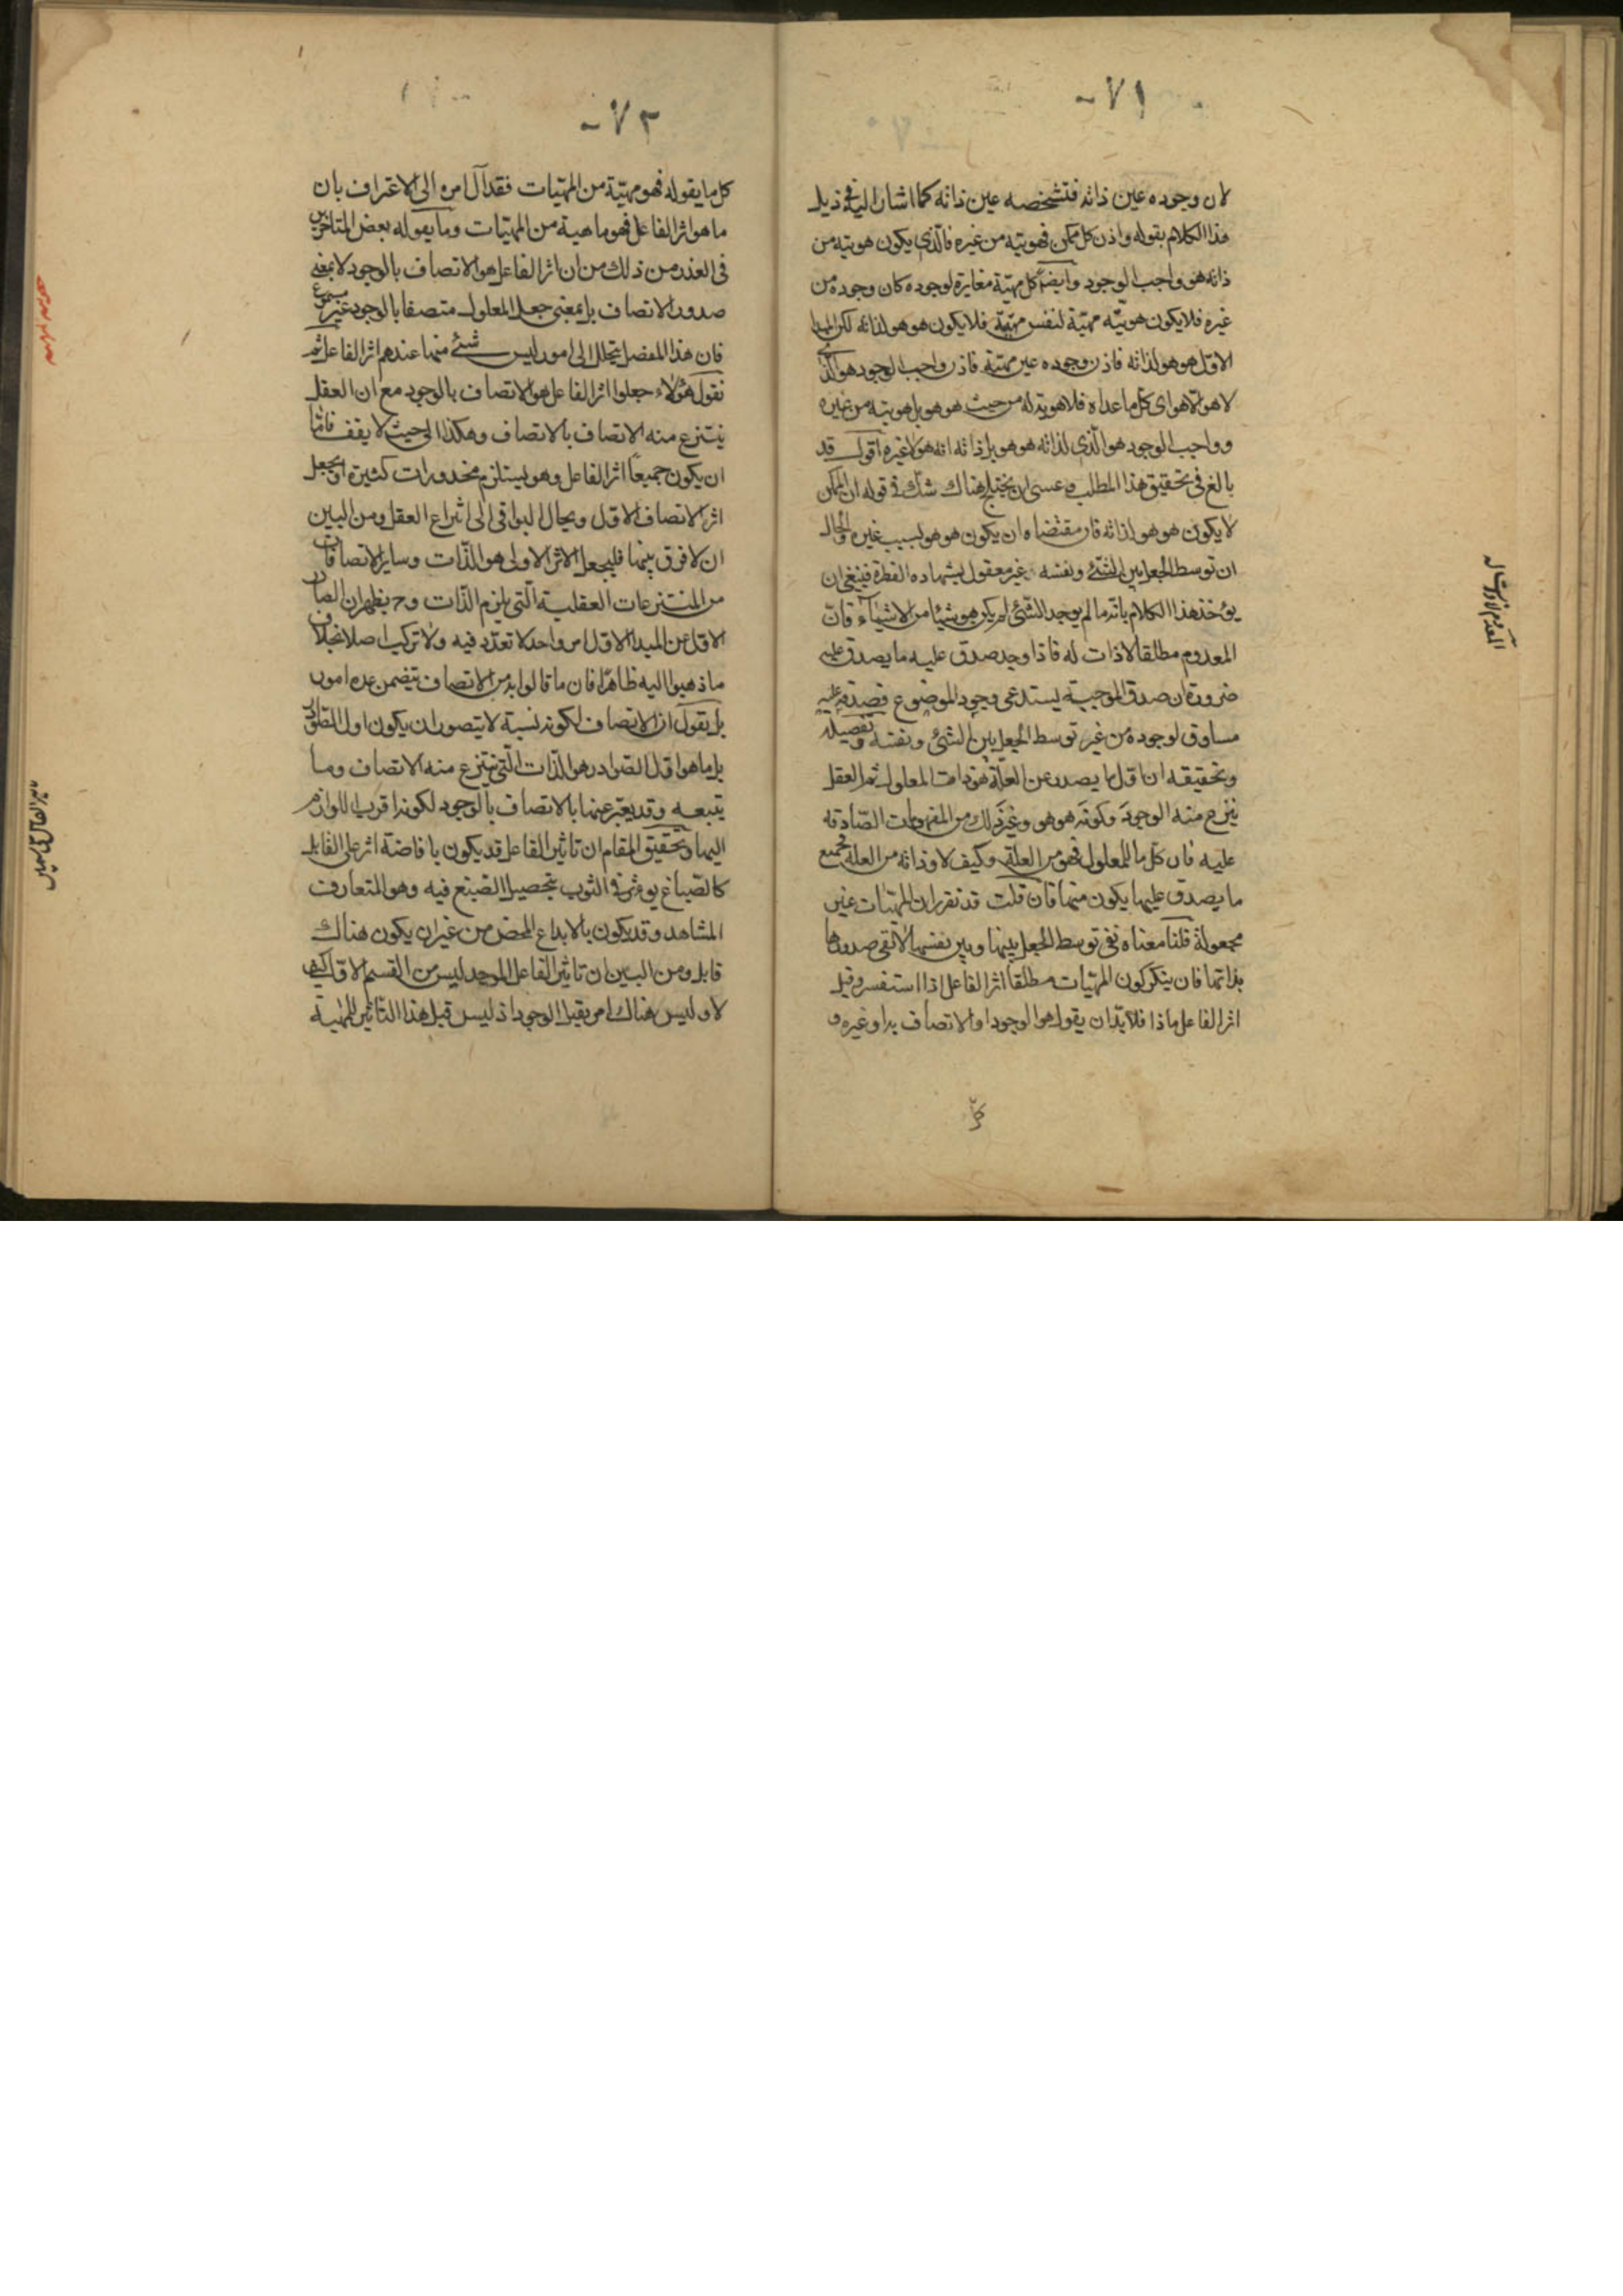 ٧١
لان وجوده عين ذاته فتشخصه عين ذاته كما اشار اليه فى ذيل
هذا الكلام بقوله واذن كل ممكن فهويته من غيره فالّذى يكون هويته من
ذاته هو واجب الوجود وايضا كل مهيّة مغايرة لوجوده كان وجوده من
غيره فلا يكون هويّته مهيّة لنفس مهيّته فلا يكون هو هو لذاته لكن المبدا
الاوّل هو هو لذاته فاذن وجوده عين مهيّته فاذن واجب الوجود هو الّذى
لا هو الّا هو اى كل ما عداه فلا هوية له من حيث هو هو بل هويته من غيره
وواجب الوجود هو الّذى لذاته هو هو بل ذاته انه هو لا غيره اقول قد
بالغ فى تحقيق هذا المطلب وعسى ان يختلج هناك شك فى قوله ان الممكن
لا يكون هو هو لذاته فان مقتضاه ان يكون هو هو بسبب غيره والحال
ان توسط الجعل بين الشئ ونفسه غير معقول بشهادة الفطرة فينبغى ان
يؤخذ هذا الكلام بانّه ما لم يوجد الشئ لم يكن هو شيئا من الاشياء فانّ
المعدوم مطلقا لا ذات له فاذا وجد صدق عليه ما يصدق عليه
ضرورة ان صدق الموجبة يستدعى وجود الموضوع فصدقه عليه
مساوق لوجوده من غير توسط الجعل بين الشئ ونفسه وتفصيله
وتحقيقه ان اوّل ما يصدر عن العلة هو ذات المعلول ثم العقل
ينزع منه الوجود وكونه هو هو وغير ذلك من المفهومات الصّادقه
عليه فان كلّ ما للمعلول فهو من العلة وكيف لا وذاته من العلة فجميع
ما يصدق عليها يكون منها فان قلت قد تقرر ان المهيّات غير
مجعولة قلنا معناه نفى توسط الجعل بينها وبين نفسها لا نفى صدورها
بذاتها فان ينكر كون المهيّات مطلقا اثر الفاعل اذا استفسر وقيل
اثر الفاعل ماذا فلا بدّ ان يقول هو الوجود او الاتصاف به او غيره و
كلّ
المعدوم لا ذات له
٧٢
كل ما يقوله فهو مهيّة من المهيّات فقد آل امره الى الاعتراف بان
ما هو اثر الفاعل فهو ماهية من المهيّات وما يقوله بعض المتاخرين
فى العذر من ذلك من ان اثر الفاعل هو الاتصاف بالوجود لا بمعنى
صدور الاتصاف بل بمعنى جعل المعلول متصفا بالوجود غير مسموع
فان هذا المفصل يتحلل الى امور ليس شئ منها عندهم اثر الفاعل ثم
نقول هؤلاء جعلوا اثر الفاعل هو الاتصاف بالوجود مع ان العقل
ينتزع منه الاتصاف بالاتصاف وهكذا الى حيث لا يقف فامّا
ان يكون جميعا اثر الفاعل وهو يستلزم محذورات كثيرة او يجعل
اثر الاتصاف الاوّل ويحال البواقى الى انتزاع العقل ومن البين
ان لا فرق بينها فليجعل الاثر الاولى هو الذّات وساير الاتصافات
من المنتزعات العقلية الّتى يلزم الذّات وح يظهر ان الصادر
الاوّل عن المبدا الاوّل امر واحد لا تعدّد فيه ولا تركيب اصلا بخلاف
ما ذهبوا اليه ظاهرا فان ما قالوا به من الاتصاف يتضمن عدة امور
بل يقول ان الاتصاف لكونه نسبة لا يتصور ان يكون اول الصوادر
بل ما هو اوّل الصّوادر هو الذّات الّتى ينتزع منه الاتصاف وما
يتبعه وقد يعبّر عنها بالاتصاف بالوجود لكونه اقرب اللوازم
اليها وتحقيق المقام ان تاثير الفاعل قد يكون بافاضة اثر على القابل
كالصّباغ يؤثر فى الثوب بتحصيل الصبغ فيه وهو المتعارف
المشاهد وقد يكون بالابداع المحض من غير ان يكون هناك
قابل ومن البين ان تاثير الفاعل الموجد ليس من القسم الاوّل كيف
لا وليس هناك امر يقبل الوجود اذ ليس قبل هذا التاثير للمهية
تاثير الفاعل على